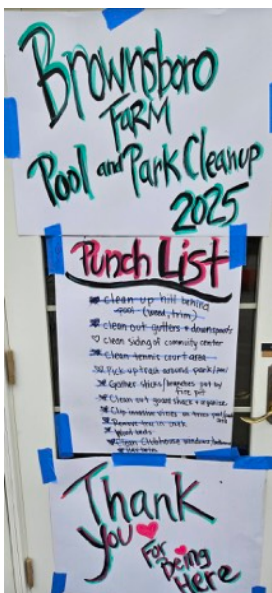 Brownsboro
FARM
Pool and Park Cleanup
2025
Punch List
clean up hill behind
pool (weed, trim)
clean out gutters + downspouts
clean siding of community center
Clean tennis court area
Pick up trash around park/pool
Gather sticks/branches put by
fire pit
Clean out guard shack + organize
Clip invasive vines on trees pool/park
area
Remove tree in creek
Weed beds
Clean Clubhouse windows/
Thank
You
For Being
Here